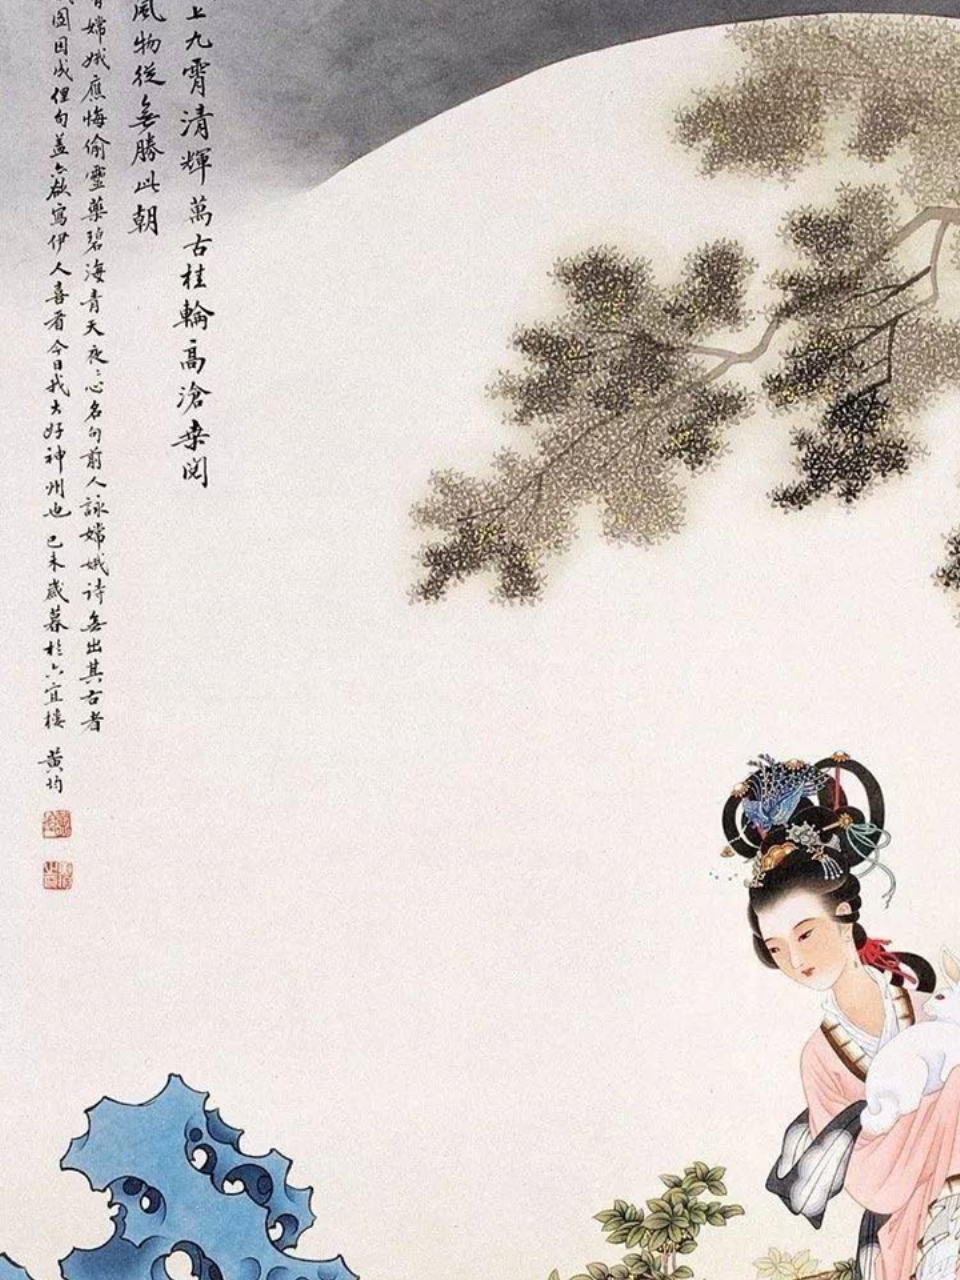 上九霄清輝萬古桂輪高滄桑閱
風物從無勝此朝
嫦娥應悔偷靈藥碧海青天夜〻心名句前人詠嫦娥诗無出其右者
圖因成俚句蓋欲寫伊人喜看今日我大好神州也 己未歲暮於六宜樓 黄均